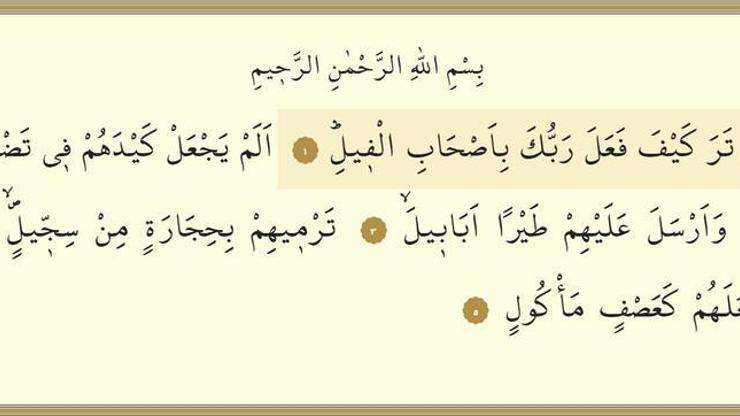 بِسْمِ اللهِ الرَّحْمٰنِ الرَّح۪يمِ
تَرَ كَيْفَ فَعَلَ رَبُّكَ بِاَصْحَابِ الْف۪يلِۜ ١ اَلَمْ يَجْعَلْ كَيْدَهُمْ ف۪ى
وَاَرْسَلَ عَلَيْهِمْ طَيْرًا اَبَاب۪يلَۙ ٣ تَرْم۪يهِمْ بِحِجَارَةٍ مِنْ سِجّ۪يلٍۙ
كَعَصْفٍ مَأْكُولٍ ٥